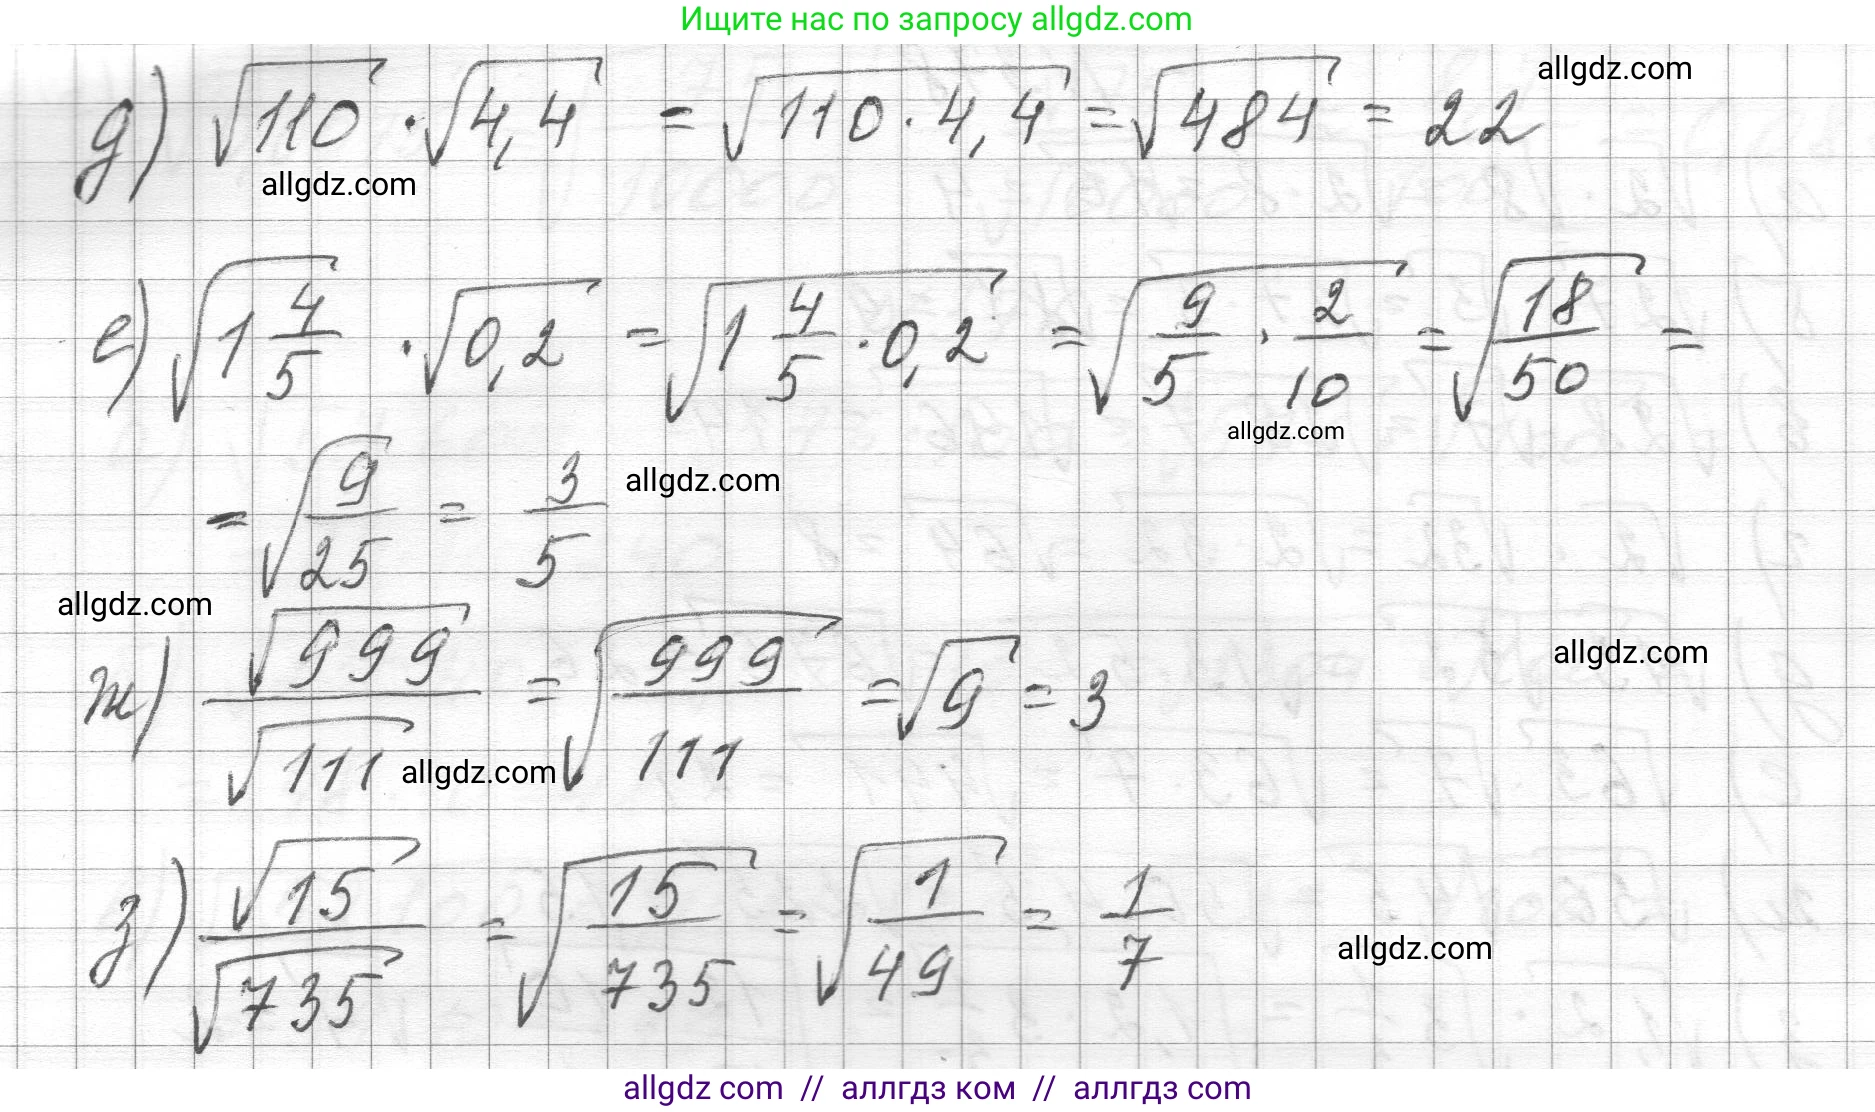 Ищите нас по запросу allgdz.com
allgdz.com
д) √110 · √4,4 = √110 · 4,4 = √484 = 22
allgdz.com
е) √1 4/5 · √0,2 = √1 4/5 · 0,2 = √9/5 · 2/10 = √18/50 =
allgdz.com
= √9/25 = 3/5 allgdz.com
allgdz.com
ж) √999/√111 = √999/111 = √9 = 3
allgdz.com
allgdz.com
з) √15/√735 = √15/735 = √1/49 = 1/7
allgdz.com
allgdz com // аллгдз ком // аллгдз com